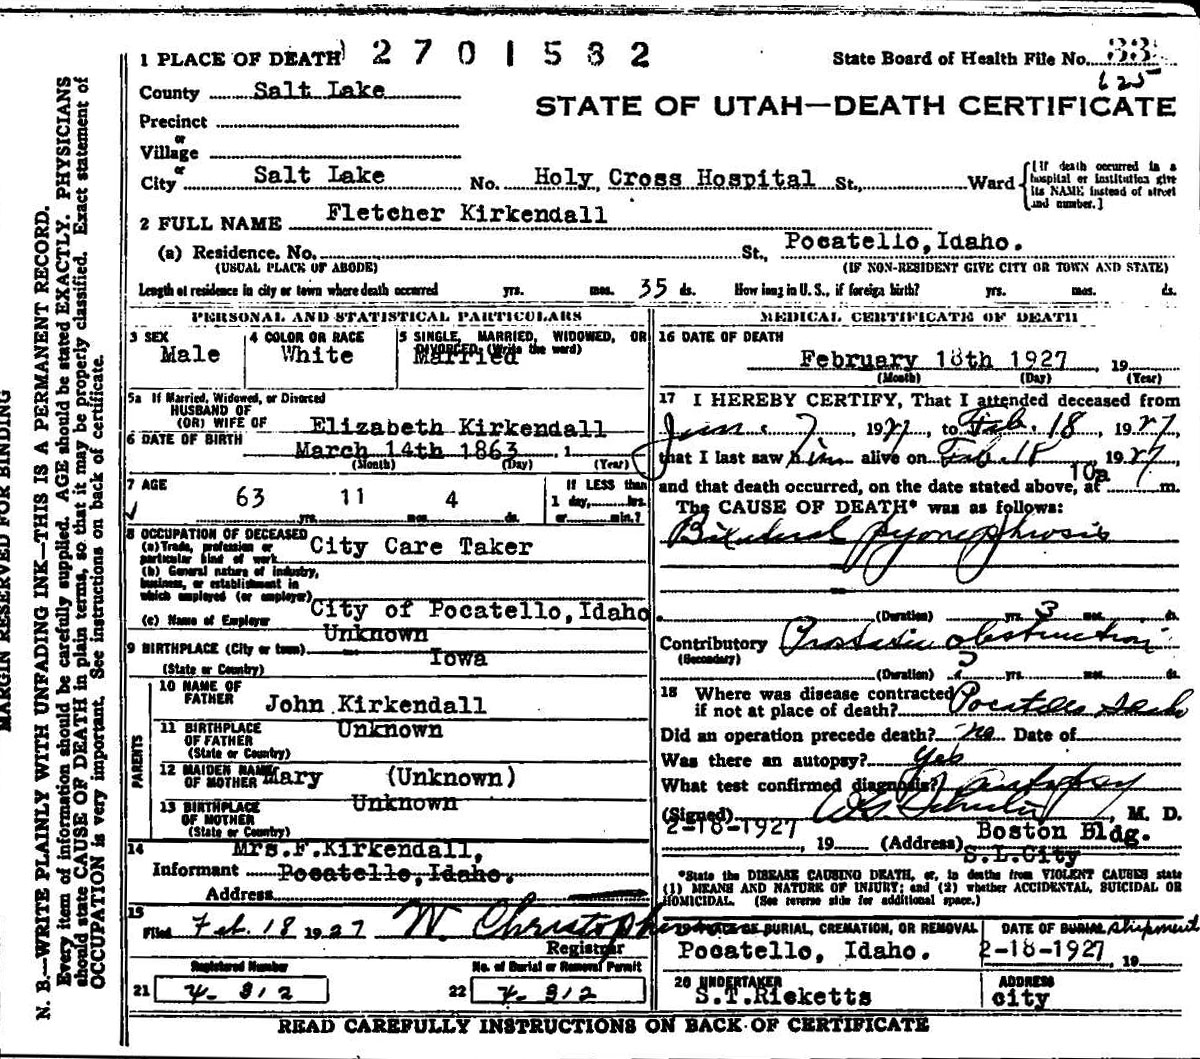 MARGIN RESERVED FOR BINDING
N. B.—WRITE PLAINLY WITH UNFADING INK—THIS IS A PERMANENT RECORD.
Every item of information should be carefully supplied. AGE should be stated EXACTLY. PHYSICIANS
should state CAUSE OF DEATH in plain terms, so that it may be properly classified. Exact statement of
OCCUPATION is very important. See instructions on back of certificate.
1 PLACE OF DEATH 2701582
State Board of Health File No. 33
625
County Salt Lake
STATE OF UTAH—DEATH CERTIFICATE
Precinct
or
Village
or
City Salt Lake No. Holy Cross Hospital St., Ward
[If death occurred in a hospital or institution give its NAME instead of street and number.]
2 FULL NAME Fletcher Kirkendall
(a) Residence. No. St., Pocatello, Idaho.
(USUAL PLACE OF ABODE) (IF NON-RESIDENT GIVE CITY OR TOWN AND STATE)
Length of residence in city or town where death occurred yrs. mos. 35 ds. How long in U. S., if foreign birth? yrs. mos. ds.
PERSONAL AND STATISTICAL PARTICULARS
3 SEX
Male
4 COLOR OR RACE
White
5 SINGLE, MARRIED, WIDOWED, OR
DIVORCED (Write the word)
Married
5a If Married, Widowed, or Divorced
HUSBAND OF
(OR) WIFE OF Elizabeth Kirkendall
6 DATE OF BIRTH March 14th 1863, 1
(Month) (Day) (Year)
7 AGE 63 11 4
yrs. mos. ds.
If LESS than
1 day, hrs.
or min.?
8 OCCUPATION OF DECEASED
(a) Trade, profession or
particular kind of work City Care Taker
(b) General nature of industry,
business, or establishment in
which employed (or employer) City of Pocatello, Idaho
(c) Name of Employer
Unknown
9 BIRTHPLACE (City or town)
Iowa
(State or Country)
PARENTS
10 NAME OF
FATHER John Kirkendall
11 BIRTHPLACE
OF FATHER Unknown
(State or Country)
12 MAIDEN NAME
OF MOTHER Mary (Unknown)
13 BIRTHPLACE
OF MOTHER Unknown
(State or Country)
14
Informant Mrs. F. Kirkendall,
Pocatello, Idaho.
Address
15
Filed Feb. 18 1927 W. Christoph
Registrar
Registered Number
21 4-312
No. of Burial or Removal Permit
22 4-312
MEDICAL CERTIFICATE OF DEATH
16 DATE OF DEATH
February 18th 1927, 19
(Month) (Day) (Year)
17 I HEREBY CERTIFY, That I attended deceased from
7, 1927, to Feb. 18, 1927,
that I last saw him alive on Feb. 18 1927,
and that death occurred, on the date stated above, at 10a m.
The CAUSE OF DEATH* was as follows:
Bilateral pyonephrosis
(Duration) yrs. 3 mos. ds.
Contributory Prostatic obstruction
(Secondary)
(Duration) yrs. mos. ds.
18 Where was disease contracted
if not at place of death? Pocatello Idaho
Did an operation precede death? no Date of
Was there an autopsy? Yes
What test confirmed diagnosis? Autopsy
(Signed), M. D.
2-18-1927, 19 (Address) Boston Bldg.
S.L.City
*State the DISEASE CAUSING DEATH, or, in deaths from VIOLENT CAUSES state
(1) MEANS AND NATURE OF INJURY; and (2) whether ACCIDENTAL, SUICIDAL OR
HOMICIDAL. (See reverse side for additional space.)
19 PLACE OF BURIAL, CREMATION, OR REMOVAL
Pocatello, Idaho.
DATE OF BURIAL Shipment
2-18-1927, 19
20 UNDERTAKER
S.T.Ricketts
ADDRESS
city
READ CAREFULLY INSTRUCTIONS ON BACK OF CERTIFICATE